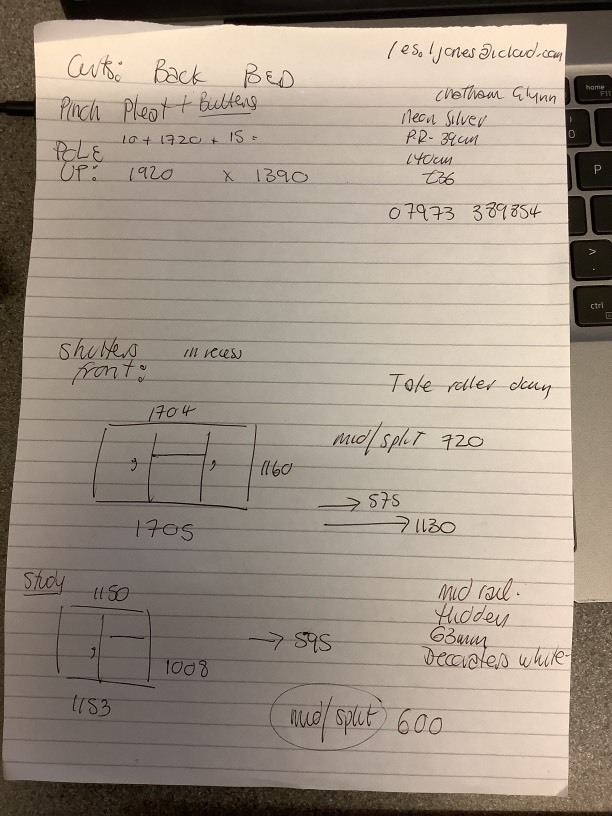 les.ljones@icloud.com
Curts: Back BED
Pinch Pleat + Buttons
Chatham Glynn
Neon Silver
P.R- 39cm
140cm
£36
10 + 1720 + 15 =
POLE
UP: 1920 x 1390
07973 389854
Shutters in recess
front:
Tote roller
1704
mid/split 720
1160
→ 575
→ 1130
1705
Study
1150
mid rail.
Hidden
63mm
Decorators white
→ 595
1008
1153
mid/split 600
home
P
>
.
ctrl